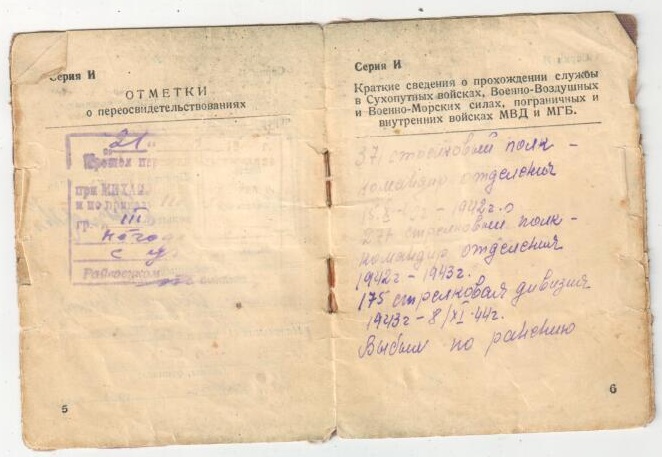 Серия И
ОТМЕТКИ
о переосвидетельствованиях
21
Прошел
при
и по
гр. III
с
Райвоенком
5
Серия И
Краткие сведения о прохождении службы
в Сухопутных войсках, Военно-Воздушных
и Военно-Морских силах, пограничных и
внутренних войсках МВД и МГБ.
37 стрелковый полк –
командир отделения
1942г.
274 стрелковый полк –
командир отделения
1942г – 1943г.
175 стрелковая дивизия
1943г – 8/XI-44г.
Выбыл по ранению
6